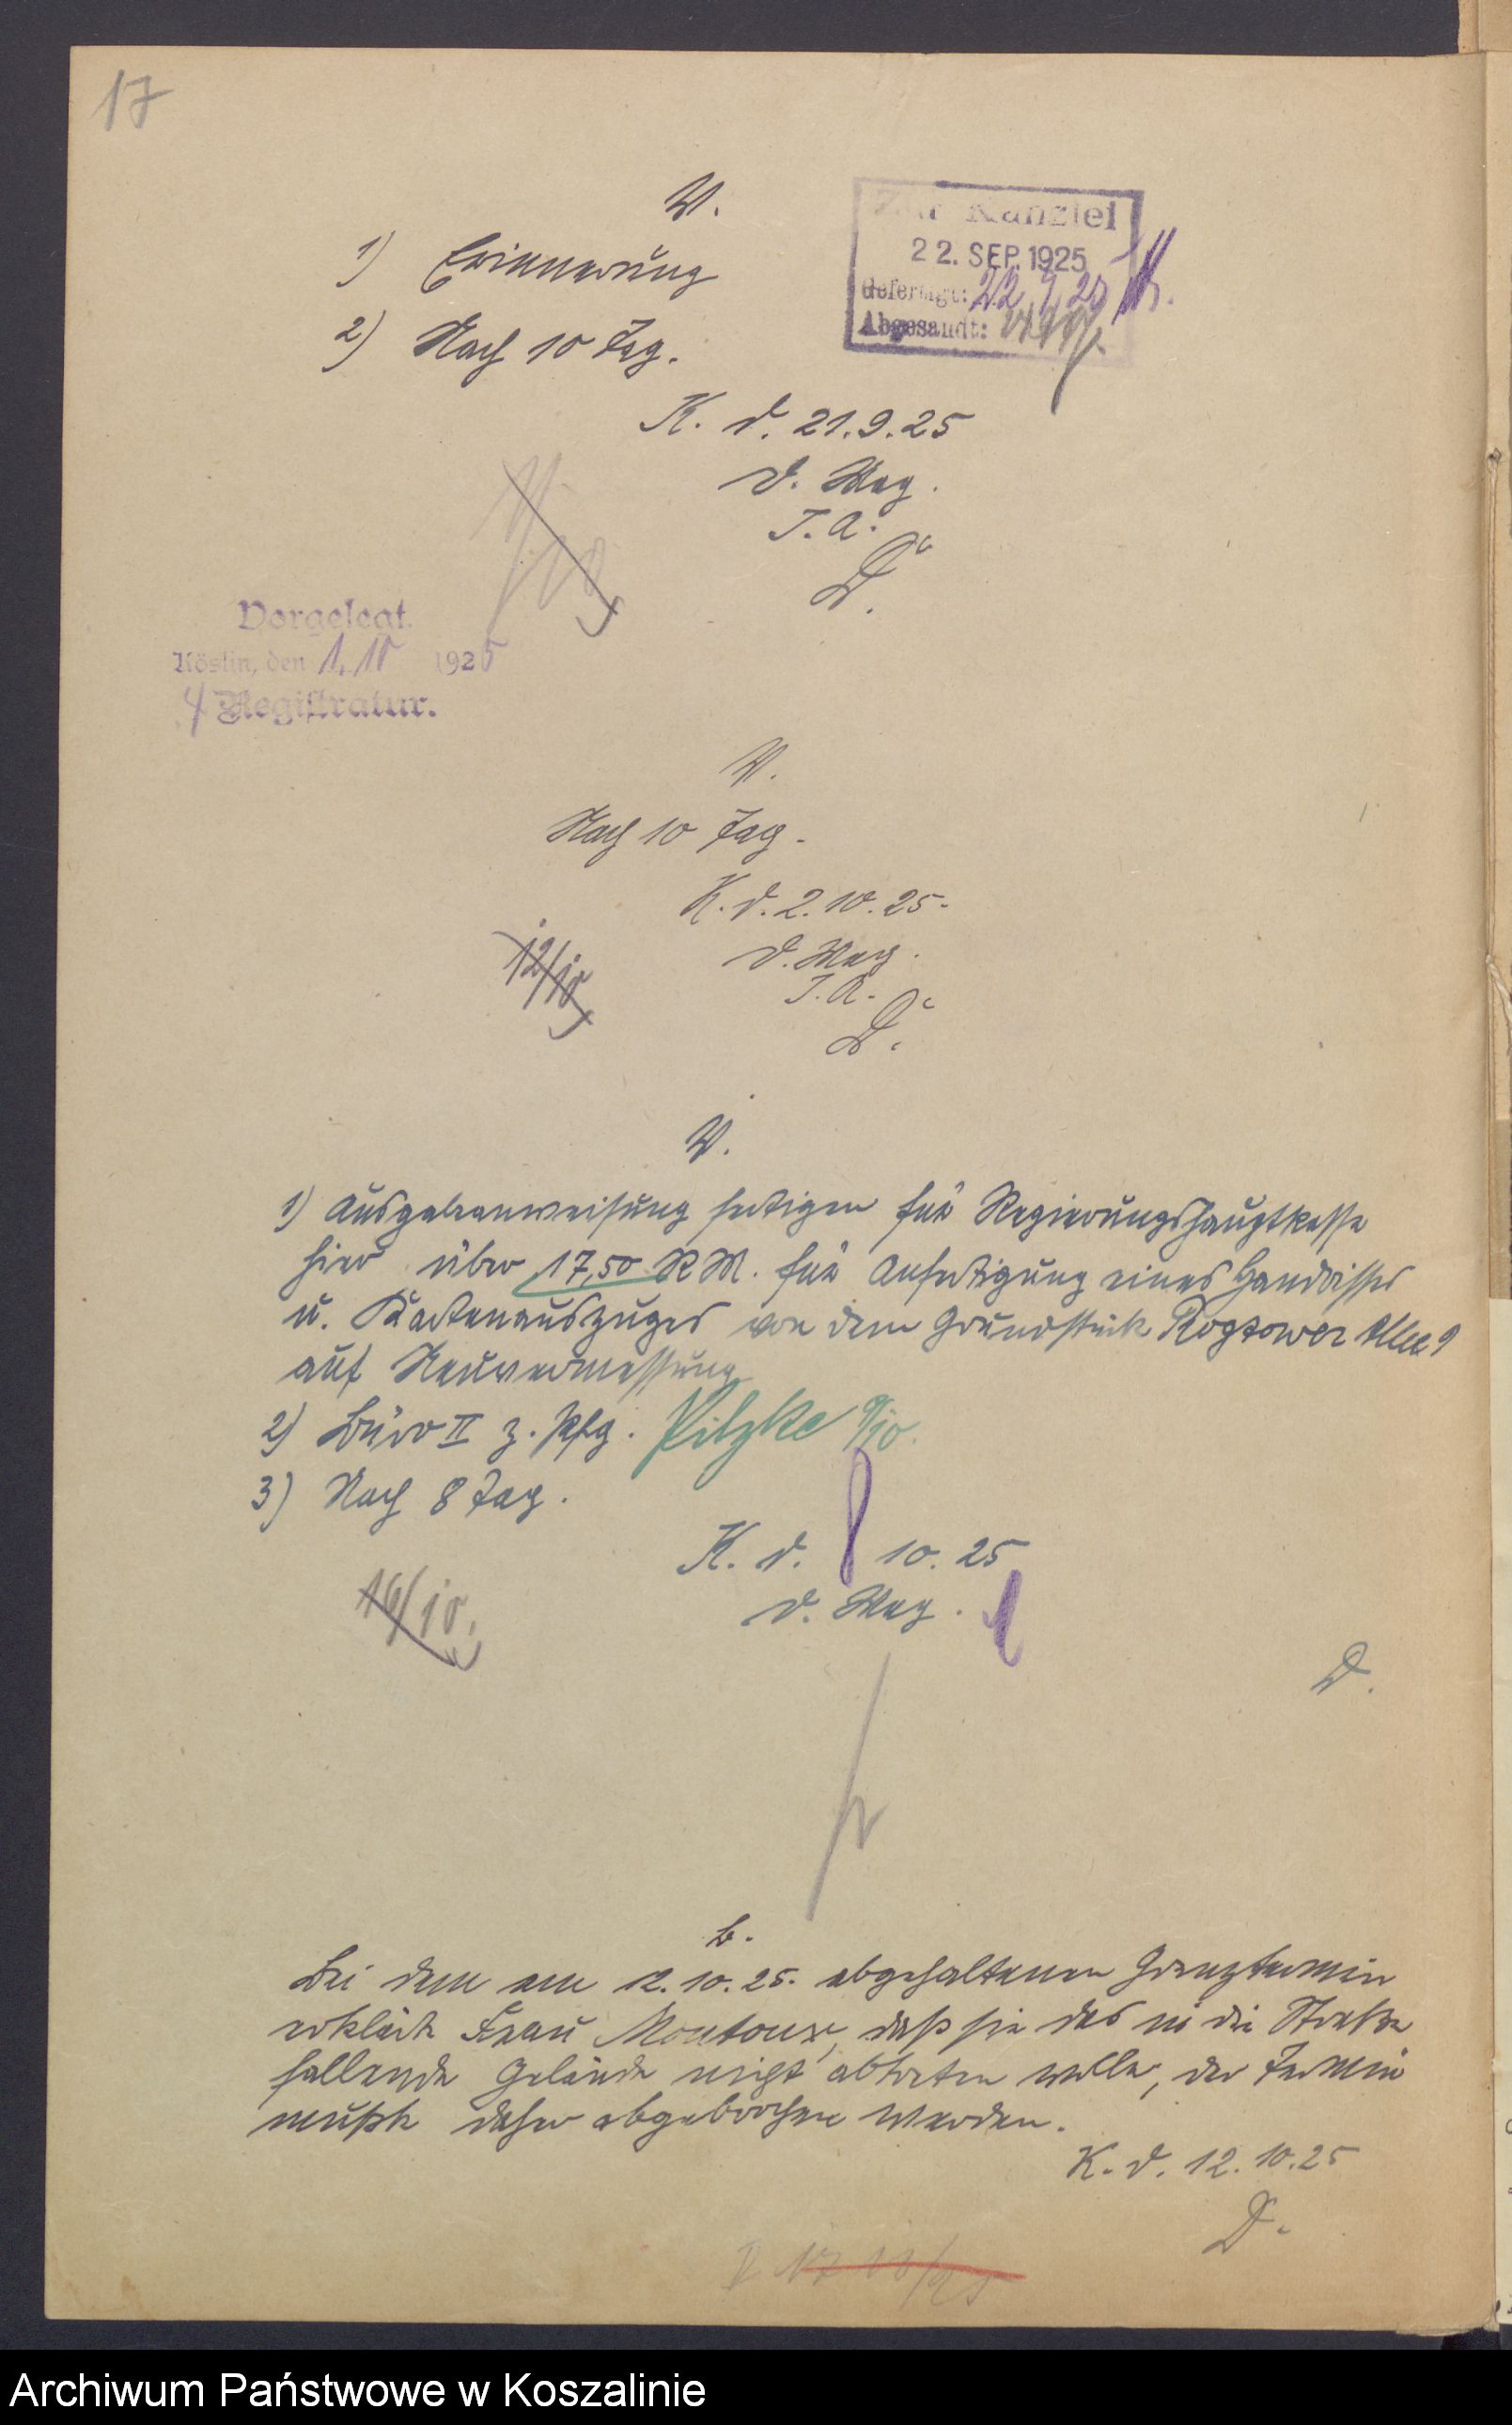 17
V.
1) Erinnerung
2) Nach 10 Tag.
Zur Kanzlei
22. SEP. 1925
Gefertigt: 22.9.25
Abgesandt:
K. d. 21.9.25
D. Mag.
I. A.
D.
Vorgelegt.
Köslin, den 1.10 1925
Registratur.
V.
Nach 10 Tag.
K. d. 2.10.25.
D. Mag.
I. A.
D.
12/10
V.
1) Ausgabeanweisung fertigen für Regierungshauptkasse
hier über 17,50 RM. für Anfertigung eines Handrisses
u. Kartenauszuges von dem Grundstück Rogzower Allee 9
auf Neuvermessung
2) Büro II z. Pfg. Pilzke 9/10.
3) Nach 8 Tag.
K. d. 8 10. 25
D. Mag.
16/10.
D.
B.
Bei dem am 12.10.25. abgehaltenen Grenztermin
erklärte Frau Moutoux, daß sie das in die Straße
fallende Gelände nicht abtreten wolle, der Termin
mußte daher abgebrochen werden.
K. d. 12.10.25
D.
Archiwum Państwowe w Koszalinie